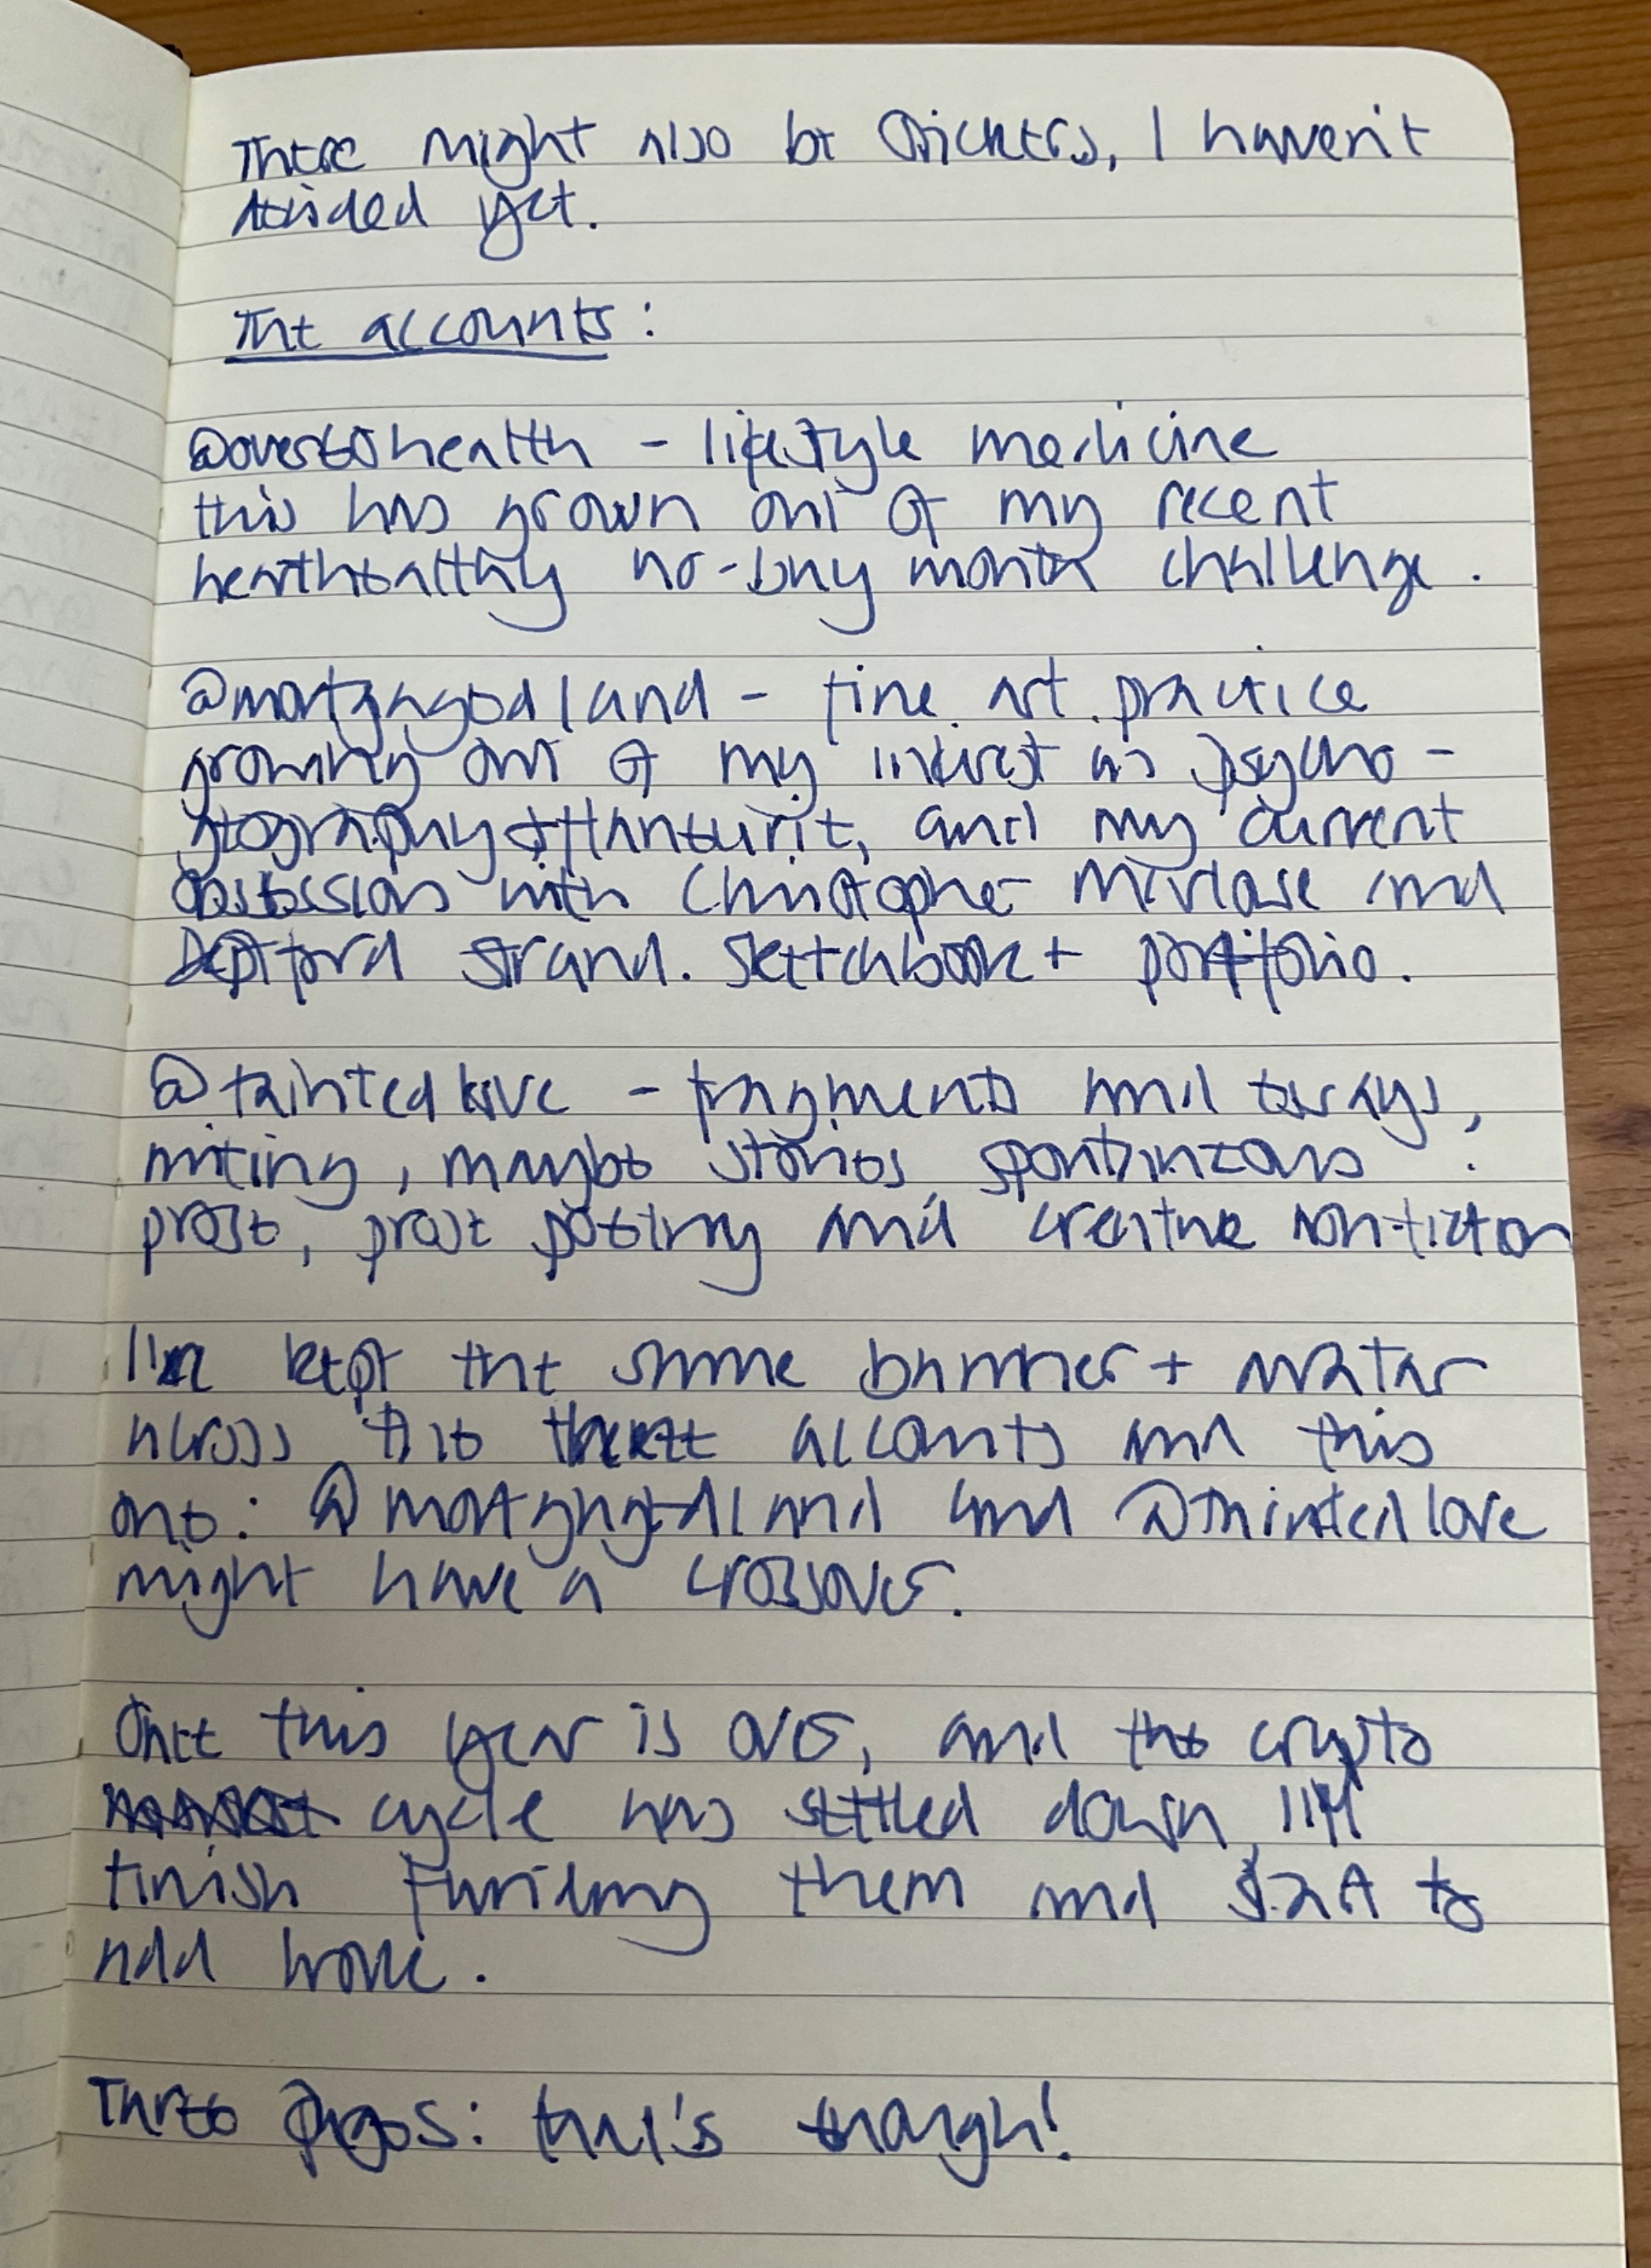 There might also be stickers, I haven't
decided yet.
The accounts:
health - lifestyle medicine
this has grown out of my recent
healthy no-buy month challenge.
- fine art practice
growing out of my interest as psycho-
geography + flaneurie, and my current
obsession with Christopher Marlowe and
Deptford Strand. Sketchbook + portfolio.
@taintedlove - fragments and essays,
writing, maybe stories, spontaneous
prose, prose poetry and creative non-fiction
I've kept the same banner + avatar
across the three accounts and this
one: and @taintedlove
might have a crossover.
Once this year is over, and the crypto
cycle has settled down, I'll
finish funding them and start to
add work.
Three pages: that's enough!